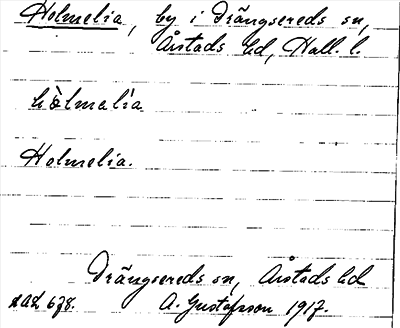 Holmelia, by i Drängsereds sn,
Årstads hd, Hall. l.
hòlmalìa
Holmelia.
Drängsereds sn, Årstads hd
A. Gustafsson 1917.